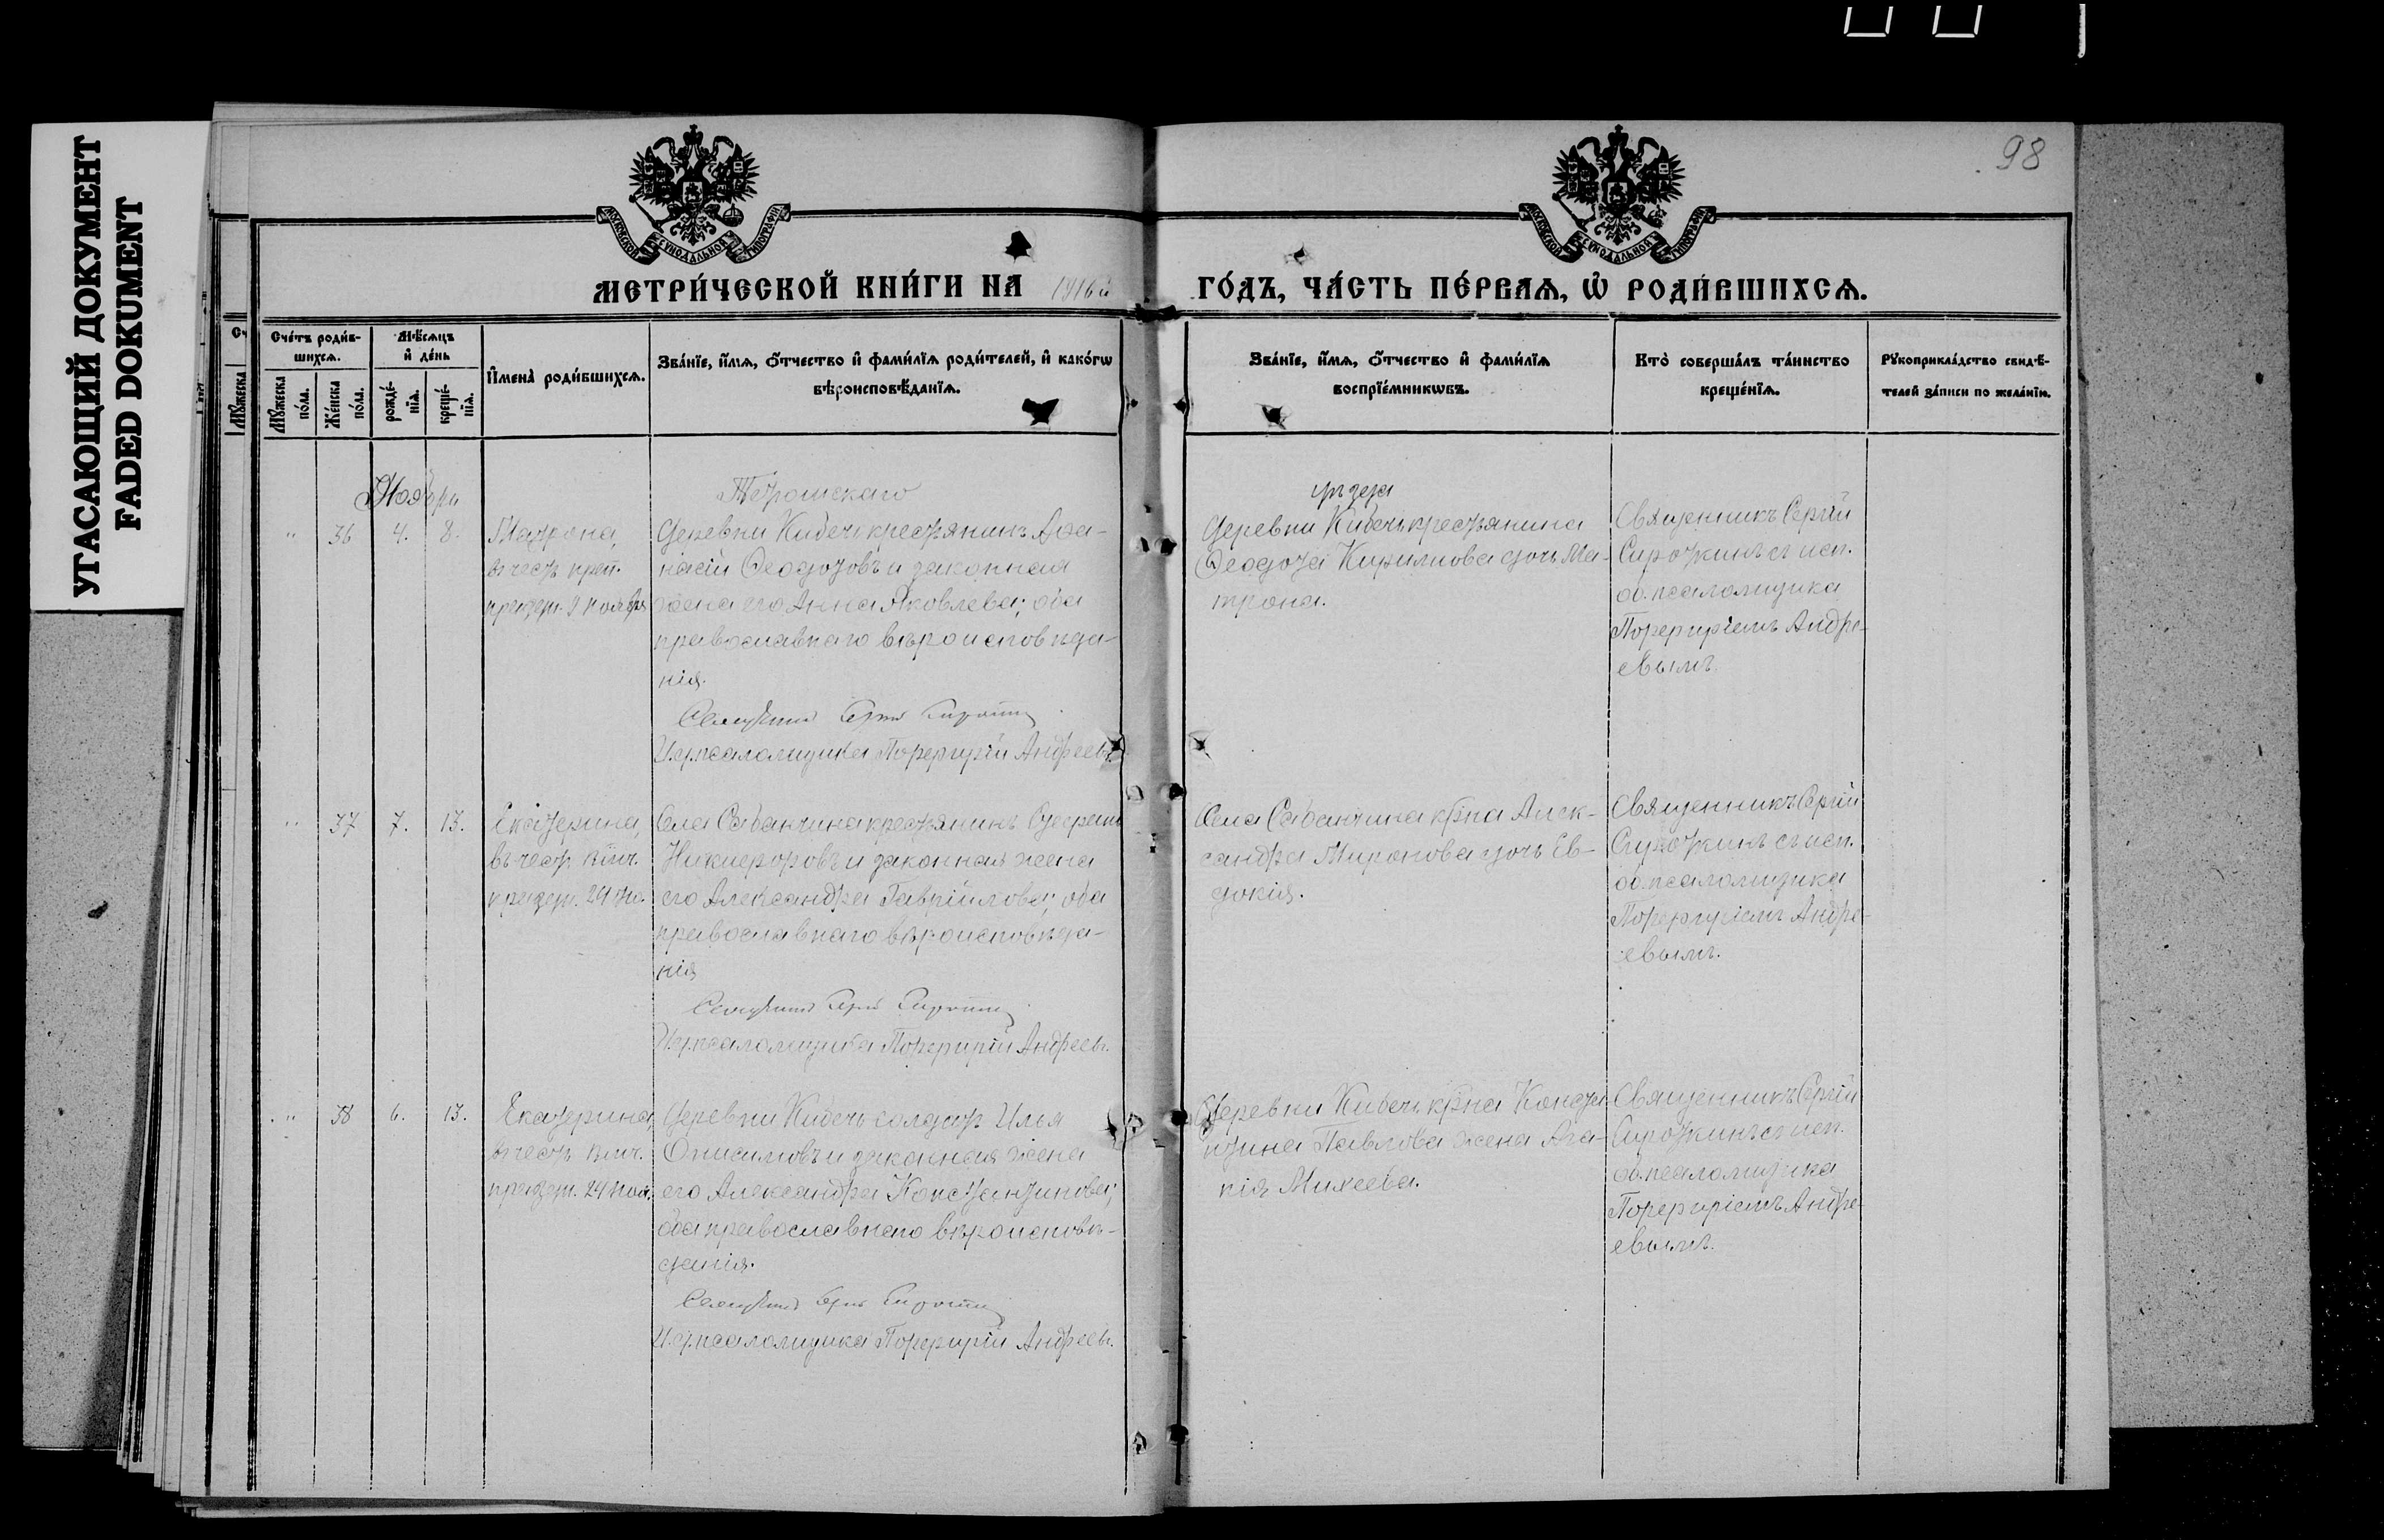 УГАСАЮЩИЙ ДОКУМЕНТ
FADED DOKUMENT
98
МОСКОВСКОЙ СѴНОДАЛЬНОЙ ТИПОГРАФІИ
МОСКОВСКОЙ СѴНОДАЛЬНОЙ ТИПОГРАФІИ
МЕТРИ́ЧЕСКОЙ КНИ́ГИ НА 1916й ГО́ДЪ, ЧА́СТЬ ПЕ́РВАѦ, Ѡ҆ РОДИ́ВШИХСѦ.
Сче́тъ роди́в-
шихсѧ.
Мꙋ́жеска
по́ла.
Же́нска
по́ла.
Мѣ́сѧцъ
и҆ де́нь
рожде́-
нїѧ.
креще́-
нїѧ.
И҆мена̀ роди́вшихсѧ.
Зва́нїе, и҆́мѧ, ѻ҆́тчество и҆ фами́лїѧ роди́телей, и҆ како́гѡ
вѣроисповѣ́данїѧ.
Зва́нїе, и҆́мѧ, ѻ҆́тчество и҆ фами́лїѧ
воспрїе́мникѡвъ.
Кто̀ соверша́лъ та́инство
креще́нїѧ.
Рꙋкоприкла́дство свидѣ́-
телей за́писи по жела́нїю.
Ноября
" 36 4. 8.
Матрона,
въ честь преп.
празден. 9 ноября
Тетюшскаго
Деревни Кибечь крестьянинъ Аѳа-
насій Ѳеодотовъ и законная
жена его Анна Яковлева; оба
православнаго вѣроисповѣда-
нія.
Священникъ Сергій Сироткинъ
И.д. псаломщика Порфирій Андреевъ.
уѣзда
Деревни Кибечь крестьянина
Ѳеодота Кириллова дочь Ма-
трона.
Священникъ Сергій
Сироткинъ съ исп.
об. псаломщика
Порфиріемъ Андре-
евымъ.
" 37 7. 13.
Екатерина,
въ честь влмч.
празден. 24 но.
Села Сабанчина крестьянинъ
Никифоровъ и законная жена
его Александра Гавріилова; оба
православнаго вѣроисповѣда-
нія
Священникъ Сергій Сироткинъ
И.д. псаломщика Порфирій Андреевъ.
Села Сабанчина кр-на Алек-
сандра Миронова дочь Ев-
докія.
Священникъ Сергій
Сироткинъ съ исп.
об. псаломщика
Порфиріемъ Андре-
евымъ.
" 38 6. 13.
Екатерина,
въ честь влмч.
празден. 24 ноя.
Деревни Кибечь солдатъ Илья
Онисимовъ и законная жена
его Александра Константинова;
оба православнаго вѣроисповѣ-
данія.
Священникъ Сергій Сироткинъ
И.д. псаломщика Порфирій Андреевъ.
Деревни Кибечь кр-на Конста-
нтина Павлова жена Ага-
пія Михеева.
Священникъ Сергій
Сироткинъ съ исп.
об. псаломщика
Порфиріемъ Андре-
евымъ.